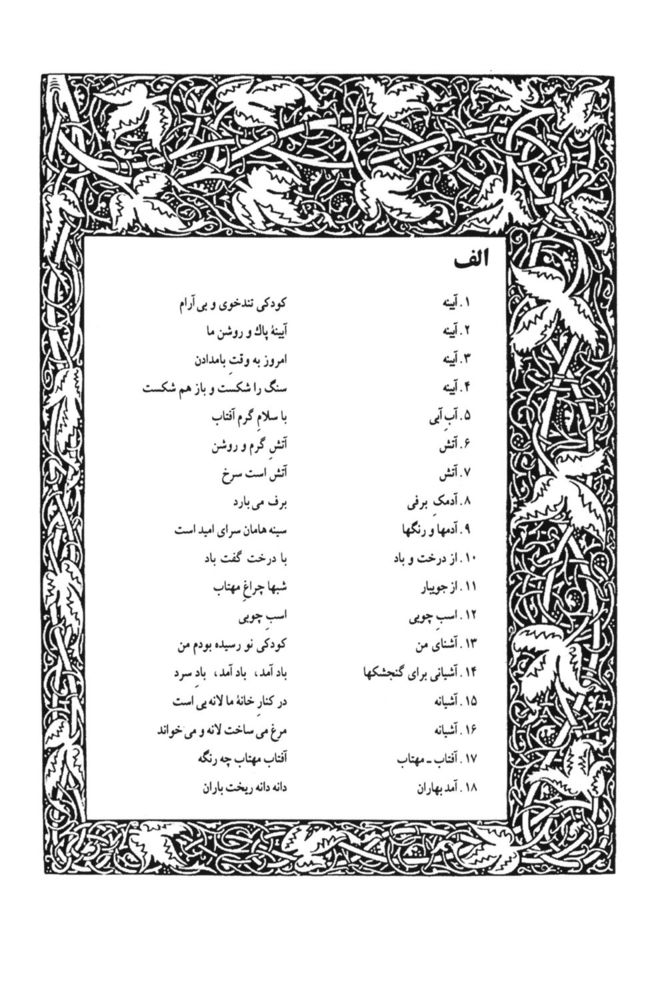 الف
۱. آیینه کودکی تندخوی و بی‌آرام
۲. آیینه آیینهٔ پاك و روشن ما
۳. آیینه امروز به وقتِ بامدادن
۴. آیینه سنگ را شکست و باز هم شکست
۵. آبِ آبی با سلامِ گرم آفتاب
۶. آتش آتشِ گرم و روشن
۷. آتش آتش است سرخ
۸. آدمکِ برفی برف می‌بارد
۹. آدمها و رنگها سینه هامان سرای امید است
۱۰. از درخت و باد با درخت گفت باد
۱۱. از جویبار شبها چراغِ مهتاب
۱۲. اسبِ چوبی اسبِ چوبی
۱۳. آشنای من کودکی نو رسیده بودم من
۱۴. آشیانی برای گنجشکها باد آمد، باد آمد، بادِ سرد
۱۵. آشیانه در کنارِ خانهٔ ما لانه یی است
۱۶. آشیانه مرغ می ساخت لانه و می‌خواند
۱۷. آفتاب ـ مهتاب آفتاب مهتاب چه رنگه
۱۸. آمد بهاران دانه دانه ریخت باران